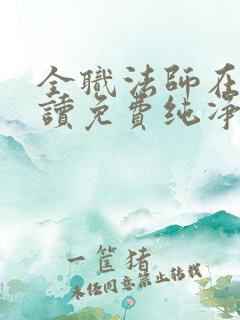 全職法師在
讀免費纯净
一筐猪
未经同意禁止转载